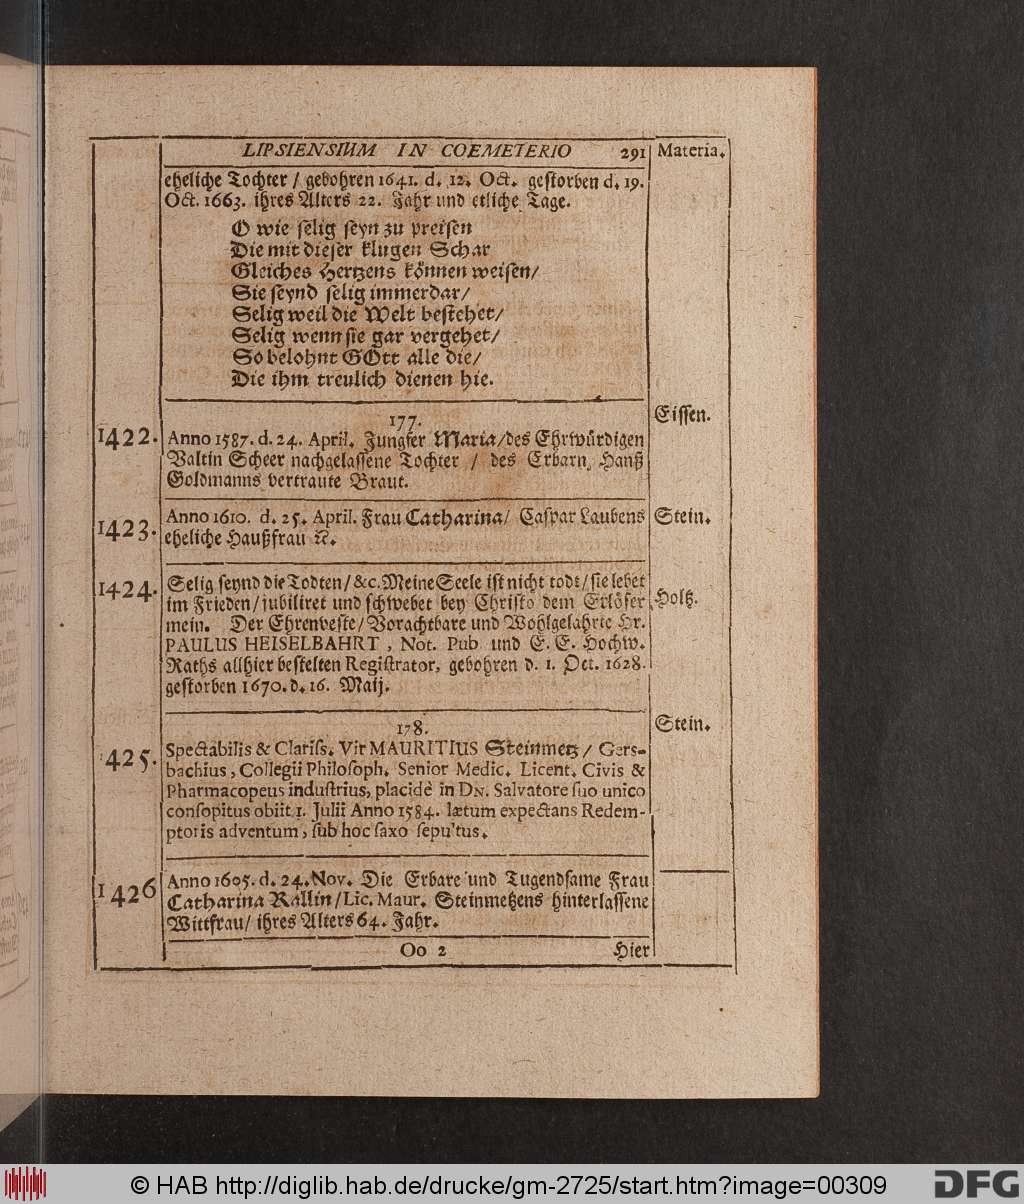 LIPSIENSIUM IN COEMETERIO 291 Materia.
eheliche Tochter / gebohren 1641. d. 12. Oct. gestorben d. 19.
Oct. 1663. ihres Alters 22. Jahr und etliche Tage.
O wie selig seyn zu preisen
Die mit dieser klugen Schar
Gleiches Hertzens können weisen/
Sie seynd selig immerdar/
Selig weil die Welt bestehet/
Selig wenn sie gar vergehet/
So belohnt GOtt alle die/
Die ihm treulich dienen hie.
177. Eissen.
1422. Anno 1587. d. 24. April. Jungfer Maria/des Ehrwürdigen
Valtin Scheer nachgelassene Tochter / des Erbarn Hanß
Goldmanns vertraute Braut.
1423. Anno 1610. d. 25. April. Frau Catharina/ Caspar Laubens Stein.
eheliche Haußfrau ꝛc.
1424. Selig seynd die Todten/&c. Meine Seele ist nicht todt/sie lebet
im Frieden/jubiliret und schwebet bey Christo dem Erlöser Holtz.
mein. Der Ehrenveste/Vorachtbare und Wohlgelahrte Hr.
PAULUS HEISELBAHRT, Not. Pub und E. E. Hochw.
Raths allhier bestelten Registrator, gebohren d. 1. Oct. 1628.
gestorben 1670. d. 16. Maij.
178. Stein.
1425. Spectabilis & Clariss. Vir MAURITIUS Steinmetz/ Gers-
bachius, Collegii Philosoph. Senior Medic. Licent. Civis &
Pharmacopeus industrius, placidè in DN. Salvatore suo unico
consopitus obiit 1. Julii Anno 1584. lætum expectans Redem-
ptoris adventum, sub hoc saxo sepu'tus.
1426 Anno 1605. d. 24. Nov. Die Erbare und Tugendsame Frau
Catharina Rallin/Lic. Maur. Steinmetzens hinterlassene
Wittfrau/ ihres Alters 64. Jahr.
Oo 2 Hier
© HAB http://diglib.hab.de/drucke/gm-2725/start.htm?image=00309
DFG